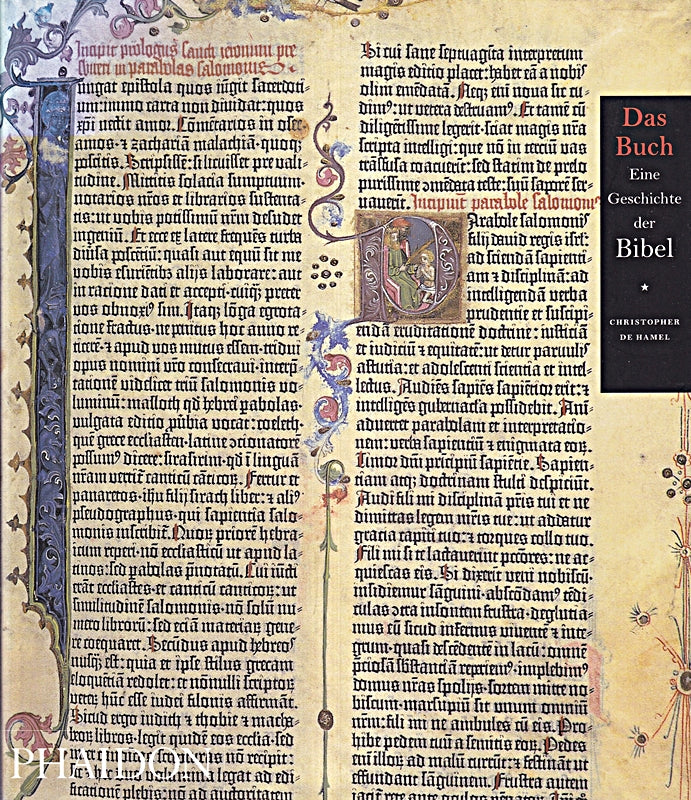 Incipit prologus sancti iheronimi pre
sbiteri in parabolas salomonis
Iungat epistola quos iūgit sacerdoti-
um: immo carta non dividat: quos
xpī nectit amor. Cōmētarios in osee
amos ⁊ zachariam malachiā quoqȝ
poscitis. Scripsissē: si licuisset pre vali-
tudine. Mittitis solacia sumptuum
notarios nr̄os et librarios sustenta-
tis: ut vobis potissimum nr̄m desudet
ingeniū. Et ecce ex latere frequēs turba
diūsa poscētiū: quasi aut equū sit me
vobis esuriētibȝ alijs laborare: aut
in ratione dati et accepti cuiqȝ preter
vos obnoxiꝰ sim. Itaqȝ lōga egrota-
tione fractus ne penitus hoc anno re-
ticerē ⁊ apud vos mutus essem tridui
opus nomini vr̄o consecravi: interp̄-
tationē videlicet triū salomonis vo-
luminū: masloth qd̄ hebrei parabolas
vulgata editio p̄vbia vocat: coeleth
quē grece ecclīasten latine ↄcionatorē
possumꝰ dicere: sirasirim qd̄ ī linguā
nr̄am vertit̄ canticū cāticoꝝ. Fertur et
panaretos ihū filij sirach liber: ⁊ aliꝰ
pseudographus qui sapientia salo-
monis inscribit̄. Quoꝝ priorē hebra-
icum reperi nō ecclīasticū ut apud la-
tinos: sed parabolas p̄notatū. Cui iūcti
erāt ecclīastes et canticū canticoꝝ: ut
similitudinē salomonis nō solū nu-
mero librorū: sed eciā materiaꝝ gene-
re coequaret. Secūdus apud hebreos
nusqȝ est: quia et ipse stilus grecam
eloquētiā redolet: et nonnulli scriptoꝝ
veteꝝ hūc esse iudei filonis affirmāt.
Sicud ergo iudith ⁊ thobie ⁊ macha-
beoꝝ libros legit quidē eos ecclīa sed
Si cui sane septuagīta interpretum
magis editio placet: habet eā a nobis
olim emēdatā. Neqȝ em̄ nova sic cu-
dimꝰ: ut vetera destruamꝰ. Et tamē cū
diligētissime legerit sciat magis nr̄a
scripta intelligi: que nō in terciū vas
trāsfusa coacuerīt: sed statim de prelo
purissime ↄmēdata teste: suū saporē ser-
vaverīt. Incipiunt parabole salomonis
Parabole salomonis
filij david regis isrl̄:
ad sciendā sapienti-
am ⁊ disciplinā: ad
intelligendā verba
prudentie et suscipi-
endā eruditationē doctrine: iusticiā
et iudiciū ⁊ equitatē: ut detur parvulis
astutia: et adolescenti scientia et intel-
lectus. Audiēs sapiēs sapiētior erit: ⁊
intelligēs gubernacla possidebit. Ani-
advertet parabolam et interpretatio-
nem: verba sapientiū ⁊ enigmata eoꝝ.
Timor dn̄i principiū sapiētie. Sapien-
tiam atqȝ doctrinam stulti despiciūt.
Audi fili mi disciplinā pr̄is tui et ne
dimittas legem mr̄is tue: ut addatur
gracia capiti tuo: ⁊ torques collo tuo.
Fili mi si te lactaverint pctōres: ne ac-
quiescas eis. Si dixerīt veni nobiscū
insidiemur sanguini abscōdamꝰ tēdi-
culas ↄtra insontem frustra deglutia-
mus eū sicud infernus viventē ⁊ inte-
grum quasi descēdentē in lacū: omnē
p̄ciosā substantiā reperiemꝰ implebimꝰ
domus nr̄as spolijs sortem mitte no-
biscum marsupiū sit unum omniū
nr̄m: fili mi ne ambules cū eis. Pro-
hibe pedem tuū a semitis eoꝝ. Pedes
em̄ illoꝝ ad malū currūt: ⁊ festināt ut
effundant sanguinem. Frustra autem
Das
Buch
Eine
Geschichte
der
Bibel
★
CHRISTOPHER
DE HAMEL
PHAIDON